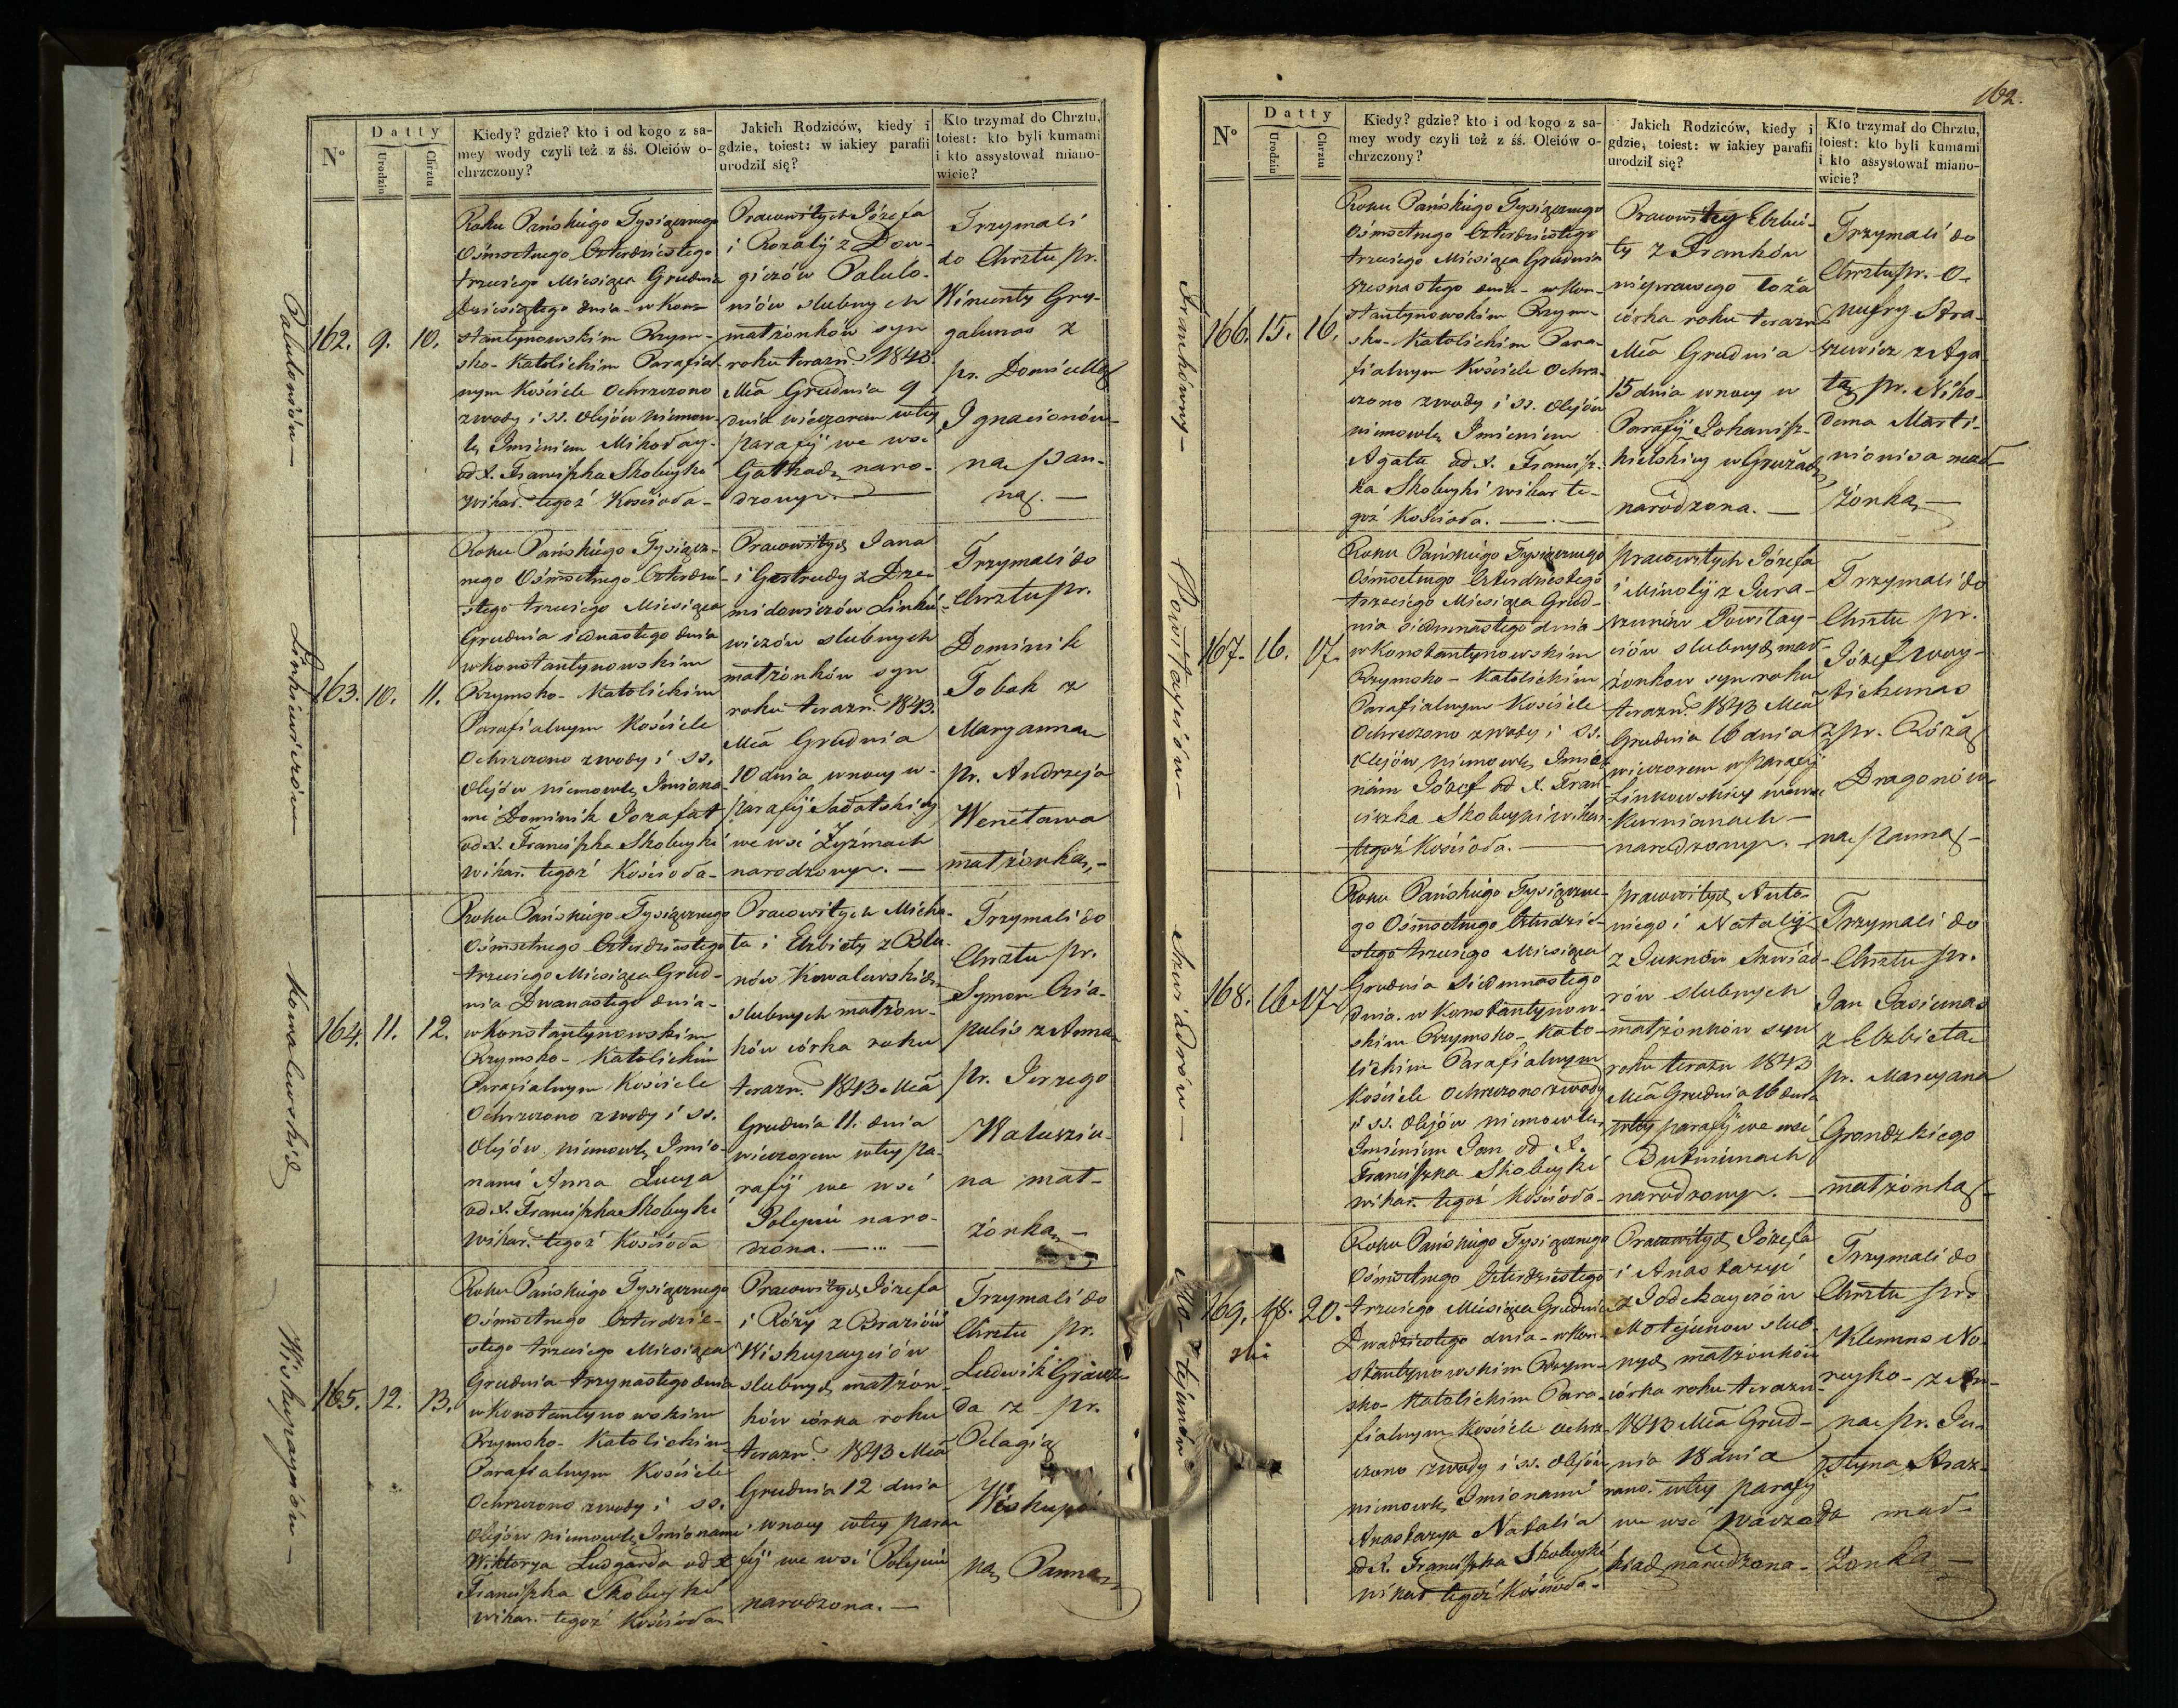 Nº
Datty
Urodzin
Chrztu
Kiedy? gdzie? kto i od kogo z sa-
mey wody czyli też z śś. Oleiów o-
chrzczony?
Jakich Rodziców, kiedy i
gdzie, toiest: w iakiey parafii
urodził się?
Kto trzymał do Chrztu,
toiest: kto byli kumami
i kto assystował miano-
wicie?
162.
9.
10.
Roku Pańskiego Tysiącznego
Ośmsetnego Czterdziestego
trzeciego Miesiąca Grudnia
Dziesiątego dnia - w Kon-
stantynowskim Rzym-
sko-Katolickim Parafial-
nym Kościele Ochrzczono
z wody i ss. Olejów niemow-
lę Imieniem Mikołay
od X. Franciszka Skobeyki
wikar. tegoż Kościoła-
Pracowitych Józefa
i Rozalij z Dow-
giczów Palulo-
niów slubnych
małżonków syn
roku terazn. 1843.
Mca Grudnia 9
dnia wieczorem w tey
parafij we wsi
naro-
dzony. —
Trzymali
do Chrztu pr.
Wincenty Gry-
galunas z
pr. Domicellą
Ignacionów-
ną pan-
ną. —
163.
10.
11.
Roku Pańskiego Tysiącz-
nego Ośmsetnego Czterdzie-
stego trzeciego Miesiąca
Grudnia iednastego dnia
w Konstantynowskim
Rzymsko-Katolickim
Parafialnym Kościele
Ochrzczono z wody i ss.
Olejów niemowlę Imiona-
mi Dominik Jozafat
od X. Franciszka Skobeyki
wikar. tegoż Kościoła-
Pracowitych Jana
i Gertrudy z Drze-
midowiczów Linkie-
wiczów slubnych
małżonków syn
roku terazn. 1843.
Mca Grudnia
10 dnia w nocy w
parafij Sałatskiey
we wsi Zyżmach
narodzony. —
Trzymali do
Chrztu pr.
Dominik
Tobak z
Maryanną
pr. Andrzeja
Wencława
małżonką, -
164.
11.
12.
Roku Pańskiego Tysiącznego
Ośmsetnego Czterdziestego
trzeciego Miesiąca Grud-
nia Dwanastego dnia-
w Konstantynowskim
Rzymsko-Katolickim
Parafialnym Kościele
Ochrzczono z wody i ss.
Olejów niemowlę Imio-
nami Anna Łucya
od X. Franciszka Skobeyki
wikar. tegoż Kościoła
Pracowitych Micha-
ła i Elzbiety z Blu-
nów Kowalewskich
slubnych małżon-
ków córka roku
terazn. 1843 Mca
Grudnia 11. dnia
wieczorem w tey pa-
rafij we wsi
Polepiu naro-
dzona. —
Trzymali do
Chrztu pr.
Symon Cza-
pulis z Anną
pr. Jerzego
Walusziu-
na mał-
żonką, -
165.
12.
13.
Roku Pańskiego Tysiącznego
Ośmsetnego Czterdzie-
stego trzeciego Miesiąca
Grudnia trzynastego dnia
w Konstantynowskim
Rzymsko-Katolickim
Parafialnym Kościele
Ochrzczono z wody i ss.
Olejów niemowlę Imionami
Wiktorya Ludgarda od X.
Franciszka Skobeyki
wikar. tegoż Kościoła
Pracowitych Józefa
i Róży z Braziów
Wiskupayciów
slubnych małżon-
ków córka roku
terazn. 1843 Mca
Grudnia 12 dnia
w nocy w tey para-
fij we wsi Polepiu
narodzona. —
Trzymali do
Chrztu pr.
Ludwik
da z pr.
Pelagią
ną Panną
Paluloniów —
Linkiewiczów —
Kowalewskich
Wiskupayciów —
162.
Nº
Datty
Urodzin
Chrztu
Kiedy? gdzie? kto i od kogo z sa-
mey wody czyli też z śś. Oleiów o-
chrzczony?
Jakich Rodziców, kiedy i
gdzie, toiest: w iakiey parafii
urodził się?
Kto trzymał do Chrztu,
toiest: kto byli kumami
i kto assystował miano-
wicie?
166.
15.
16.
Roku Pańskiego Tysiącznego
Ośmsetnego Czterdziestego
trzeciego Miesiąca Grudnia
szesnastego dnia - w Kon-
stantynowskim Rzym-
sko-Katolickim Para-
fialnym Kościele Ochrz-
czono z wody i ss. Olejów
niemowlę Imieniem
Agata od X. Francisz-
ka Skobeyki wikar. te-
goż Kościoła. —
Pracowitey Elzbie-
ty z Franków
nieprawego łoża
córka roku terazn.
Mca Grudnia
15 dnia w nocy w
Parafij Johanisz-
kielskiey w
narodzona. —
Trzymali do
Chrztu pr. O-
nufry Stra-
szewicz z Aga-
tą pr. Niko-
dema Marti-
nionisa mał-
żonką —
167.
16.
17.
Roku Pańskiego Tysiącznego
Ośmsetnego Czterdziestego
trzeciego Miesiąca Grud-
nia siedmnastego dnia-
w Konstantynowskim
Rzymsko-Katolickim
Parafialnym Kościele
Ochrzczono z wody i ss.
Olejów niemowlę Imie-
niem Józef od X. Fran-
ciszka Skobeyki wikar.
tegoż Kościoła. —
Pracowitych Józefa
i Minolij z Jura-
szunów Powiłay-
ciów slubnych mał-
żonkow syn roku
terazn. 1843 Mca
Grudnia 16 dnia
wieczorem w Parafij
Linkowskiey we wsi
Kurmianach —
narodzony. —
Trzymali do
Chrztu pr.
Józef Woy-
tiekunas
z pr. Różą
Dragonów-
ną Panną -
168.
16.
17.
Roku Pańskiego Tysiączne-
go Ośmsetnego Czterdzie-
stego trzeciego Miesiąca
Grudnia siedmnastego
dnia. w Konstantynow-
skim Rzymsko-Kato-
lickim Parafialnym
Kościele Ochrzczono z wody
i ss. Olejów niemowlę
Imieniem Jan od X.
Franciszka Skobeyki
wikar. tegoż Kościoła-
Pracowitych Anto-
niego i Natalij
z Juknów Szwiad-
rów slubnych
małżonków syn
roku terazn 1843
Mca Grudnia 16 dnia
w tey parafij we wsi
Butniunach
narodzony. —
Trzymali do
Chrztu pr.
Jan Jasiunas
z Elzbietą
pr. Marcyana
Grondzkiego
małżonką -
169.
18.
20.
Roku Pańskiego Tysiącznego
Ośmsetnego Czterdziestego
trzeciego Miesiąca Grudnia
Dwudziestego dnia - w Kon-
stantynowskim Rzym-
sko-Katolickim Para-
fialnym Kościele ochrz-
czono z wody i ss. Olejów
niemowlę Imionami
Anastazya Natalia
od X. Franciszka Skobeyki
wikar. tegoż Kościoła-
Pracowitych Józefa
i Anastazyi
z Podekayciów
Motejunow slub-
nych małżonków
córka roku terazn.
1843 Mca Grud-
nia 18 dnia
rano w tey parafij
we wsi
narodzona -
Trzymali do
Chrztu pr.
Klemens No-
reyko - z An-
ną pr. Ju-
styna
mał-
żonką —
Frankówny —
Powiłayciów —
Szwiadrów —
Motejunów